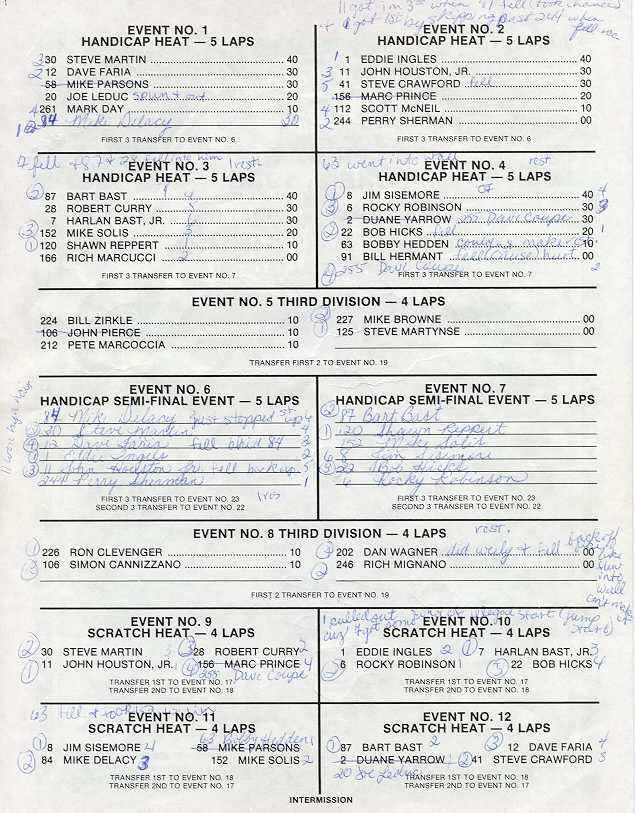 EVENT NO. 1
HANDICAP HEAT — 5 LAPS
3 30 STEVE MARTIN 40
2 12 DAVE FARIA 30
58 MIKE PARSONS 30
20 JOE LEDUC spun out 20
4 261 MARK DAY 10
84 Mike Delacy 30
FIRST 3 TRANSFER TO EVENT NO. 6
EVENT NO. 2
HANDICAP HEAT — 5 LAPS
1 1 EDDIE INGLES 40
3 11 JOHN HOUSTON, JR. 30
5 41 STEVE CRAWFORD fell 30
156 MARC PRINCE 20
4 112 SCOTT McNEIL 10
2 244 PERRY SHERMAN 00
FIRST 3 TRANSFER TO EVENT NO. 6
7 fell + 87 + 28 fell into him rest
EVENT NO. 3
HANDICAP HEAT — 5 LAPS
2 87 BART BAST 4 40
28 ROBERT CURRY 30
7 HARLAN BAST, JR. 30
3 152 MIKE SOLIS 20
1 120 SHAWN REPPERT 1 10
166 RICH MARCUCCI 2 00
FIRST 3 TRANSFER TO EVENT NO. 7
63 went into wall rest
EVENT NO. 4
HANDICAP HEAT — 5 LAPS
8 JIM SISEMORE 40 4
3 6 ROCKY ROBINSON 30 3
2 DUANE YARROW 255 Dave Coupe 30
2 22 BOB HICKS fell 20 1
63 BOBBY HEDDEN 10
91 BILL HERMANT 00
255 Dave Coupe 2
FIRST 3 TRANSFER TO EVENT NO. 7
EVENT NO. 5 THIRD DIVISION — 4 LAPS
224 BILL ZIRKLE 10
106 JOHN PIERCE 10
212 PETE MARCOCCIA 10
227 MIKE BROWNE 00
1 125 STEVE MARTYNSE 00
TRANSFER FIRST 2 TO EVENT NO. 19
EVENT NO. 6
HANDICAP SEMI-FINAL EVENT — 5 LAPS
84 Mike Delacy just stopped
30 Steve Martin
12 Dave Faria fell bhid 84
1 Eddie Ingels
3 11 John Houston Jr. fell
244 Perry Sherman 1
FIRST 3 TRANSFER TO EVENT NO. 23
SECOND 3 TRANSFER TO EVENT NO. 22
EVENT NO. 7
HANDICAP SEMI-FINAL EVENT — 5 LAPS
2 87 Bart Bast
1 120 Shawn Reppert
152 Mike Solis
6 8 Jim Sisemore
3 22 Bob Hicks
6 Rocky Robinson
FIRST 3 TRANSFER TO EVENT NO. 23
SECOND 3 TRANSFER TO EVENT NO. 22
EVENT NO. 8 THIRD DIVISION — 4 LAPS
rest.
1 226 RON CLEVENGER 10
3 106 SIMON CANNIZZANO 10
202 DAN WAGNER did wily + fell 00
2 246 RICH MIGNANO 00
FIRST 2 TRANSFER TO EVENT NO. 19
EVENT NO. 9
SCRATCH HEAT — 4 LAPS
2 30 STEVE MARTIN 3
3 28 ROBERT CURRY 2
1 11 JOHN HOUSTON, JR. 1
4 156 MARC PRINCE 4
255 Dave Coupe
TRANSFER 1ST TO EVENT NO. 17
TRANSFER 2ND TO EVENT NO. 18
1 pulled out
EVENT NO. 10
SCRATCH HEAT — 4 LAPS
1 EDDIE INGLES 2
1 7 HARLAN BAST, JR. 3
2 6 ROCKY ROBINSON 1
3 22 BOB HICKS 4
TRANSFER 1ST TO EVENT NO. 17
TRANSFER 2ND TO EVENT NO. 18
63 fell
EVENT NO. 11
SCRATCH HEAT — 4 LAPS
63 Bobby Hedden
1 8 JIM SISEMORE 4
58 MIKE PARSONS
2 84 MIKE DELACY 3
152 MIKE SOLIS 2
TRANSFER 1ST TO EVENT NO. 18
TRANSFER 2ND TO EVENT NO. 17
EVENT NO. 12
SCRATCH HEAT — 4 LAPS
1 87 BART BAST 2
3 12 DAVE FARIA 4
2 DUANE YARROW 1
2 41 STEVE CRAWFORD 3
20 Joe Leduc
TRANSFER 1ST TO EVENT NO. 18
TRANSFER 2ND TO EVENT NO. 17
INTERMISSION